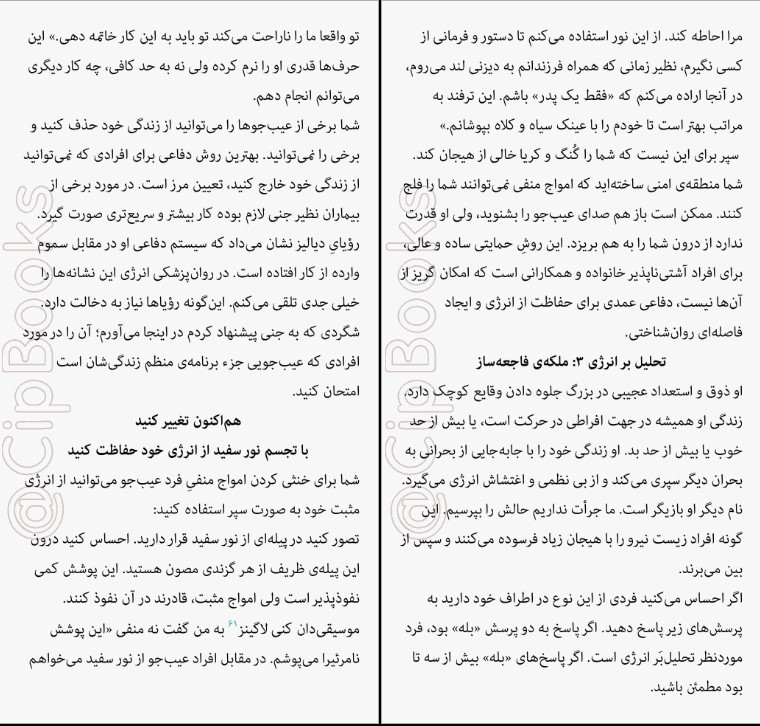 تو واقعا ما را ناراحت می‌کند تو باید به این کار خاتمه دهی.» این
حرف‌ها قدری او را نرم کرده ولی نه به حد کافی، چه کار دیگری
می‌توانم انجام دهم.
شما برخی از عیب‌جوها را می‌توانید از زندگی خود حذف کنید و
برخی را نمی‌توانید. بهترین روش دفاعی برای افرادی که نمی‌توانید
از زندگی خود خارج کنید، تعیین مرز است. در مورد برخی از
بیماران نظیر جنی لازم بوده کار بیشتر و سریع‌تری صورت گیرد.
رؤیایِ دیالیز نشان می‌داد که سیستم دفاعی او در مقابل سموم
وارده از کار افتاده است. در روان‌پزشکی انرژی این نشانه‌ها را
خیلی جدی تلقی می‌کنم. این‌گونه رؤیاها نیاز به دخالت دارد.
شگردی که به جنی پیشنهاد کردم در اینجا می‌آورم؛ آن را در مورد
افرادی که عیب‌جویی جزء برنامه‌ی منظم زندگی‌شان است
امتحان کنید.
هم‌اکنون تغییر کنید
با تجسم نور سفید از انرژی خود حفاظت کنید
شما برای خنثی کردن امواج منفیِ فرد عیب‌جو می‌توانید از انرژی
مثبت خود به صورت سپر استفاده کنید:
تصور کنید در پیله‌ای از نور سفید قرار دارید. احساس کنید درون
این پیله‌ی ظریف از هر گزندی مصون هستید. این پوشش کمی
نفوذپذیر است ولی امواج مثبت، قادرند در آن نفوذ کنند.
موسیقی‌دان کنی لاگینز۶۱ به من گفت نه منفی «این پوشش
نامرئیرا می‌پوشم. در مقابل افراد عیب‌جو از نور سفید می‌خواهم
مرا احاطه کند. از این نور استفاده می‌کنم تا دستور و فرمانی از
کسی نگیرم، نظیر زمانی که همراه فرزندانم به دیزنی لند می‌روم،
در آنجا اراده می‌کنم که «فقط یک پدر» باشم. این ترفند به
مراتب بهتر است تا خودم را با عینک سیاه و کلاه بپوشانم.»
سپر برای این نیست که شما را گُنگ و کریا خالی از هیجان کند.
شما منطقه‌ی امنی ساخته‌اید که امواج منفی نمی‌توانند شما را فلج
کنند. ممکن است باز هم صدای عیب‌جو را بشنوید، ولی او قدرت
ندارد از درون شما را به هم بریزد. این روشِ حمایتی ساده و عالی،
برای افراد آشتی‌ناپذیر خانواده و همکارانی است که امکان گریز از
آن‌ها نیست، دفاعی عمدی برای حفاظت از انرژی و ایجاد
فاصله‌ای روان‌شناختی.
تحلیل بر انرژی ۳: ملکه‌ی فاجعه‌ساز
او ذوق و استعداد عجیبی در بزرگ جلوه دادن وقایع کوچک دارد.
زندگی او همیشه در جهت افراطی در حرکت است، یا بیش از حد
خوب یا بیش از حد بد. او زندگی خود را با جابه‌جایی از بحرانی به
بحران دیگر سپری می‌کند و از بی نظمی و اغتشاش انرژی می‌گیرد.
نام دیگر او بازیگر است. ما جرأت نداریم حالش را بپرسیم. این
گونه افراد زیست نیرو را با هیجان زیاد فرسوده می‌کنند و سپس از
بین می‌برند.
اگر احساس می‌کنید فردی از این نوع در اطراف خود دارید به
پرسش‌های زیر پاسخ دهید. اگر پاسخ به دو پرسش «بله» بود، فرد
موردنظر تحلیل‌بَر انرژی است. اگر پاسخ‌های «بله» بیش از سه تا
بود مطمئن باشید.
@CipBooks
@CipBooks